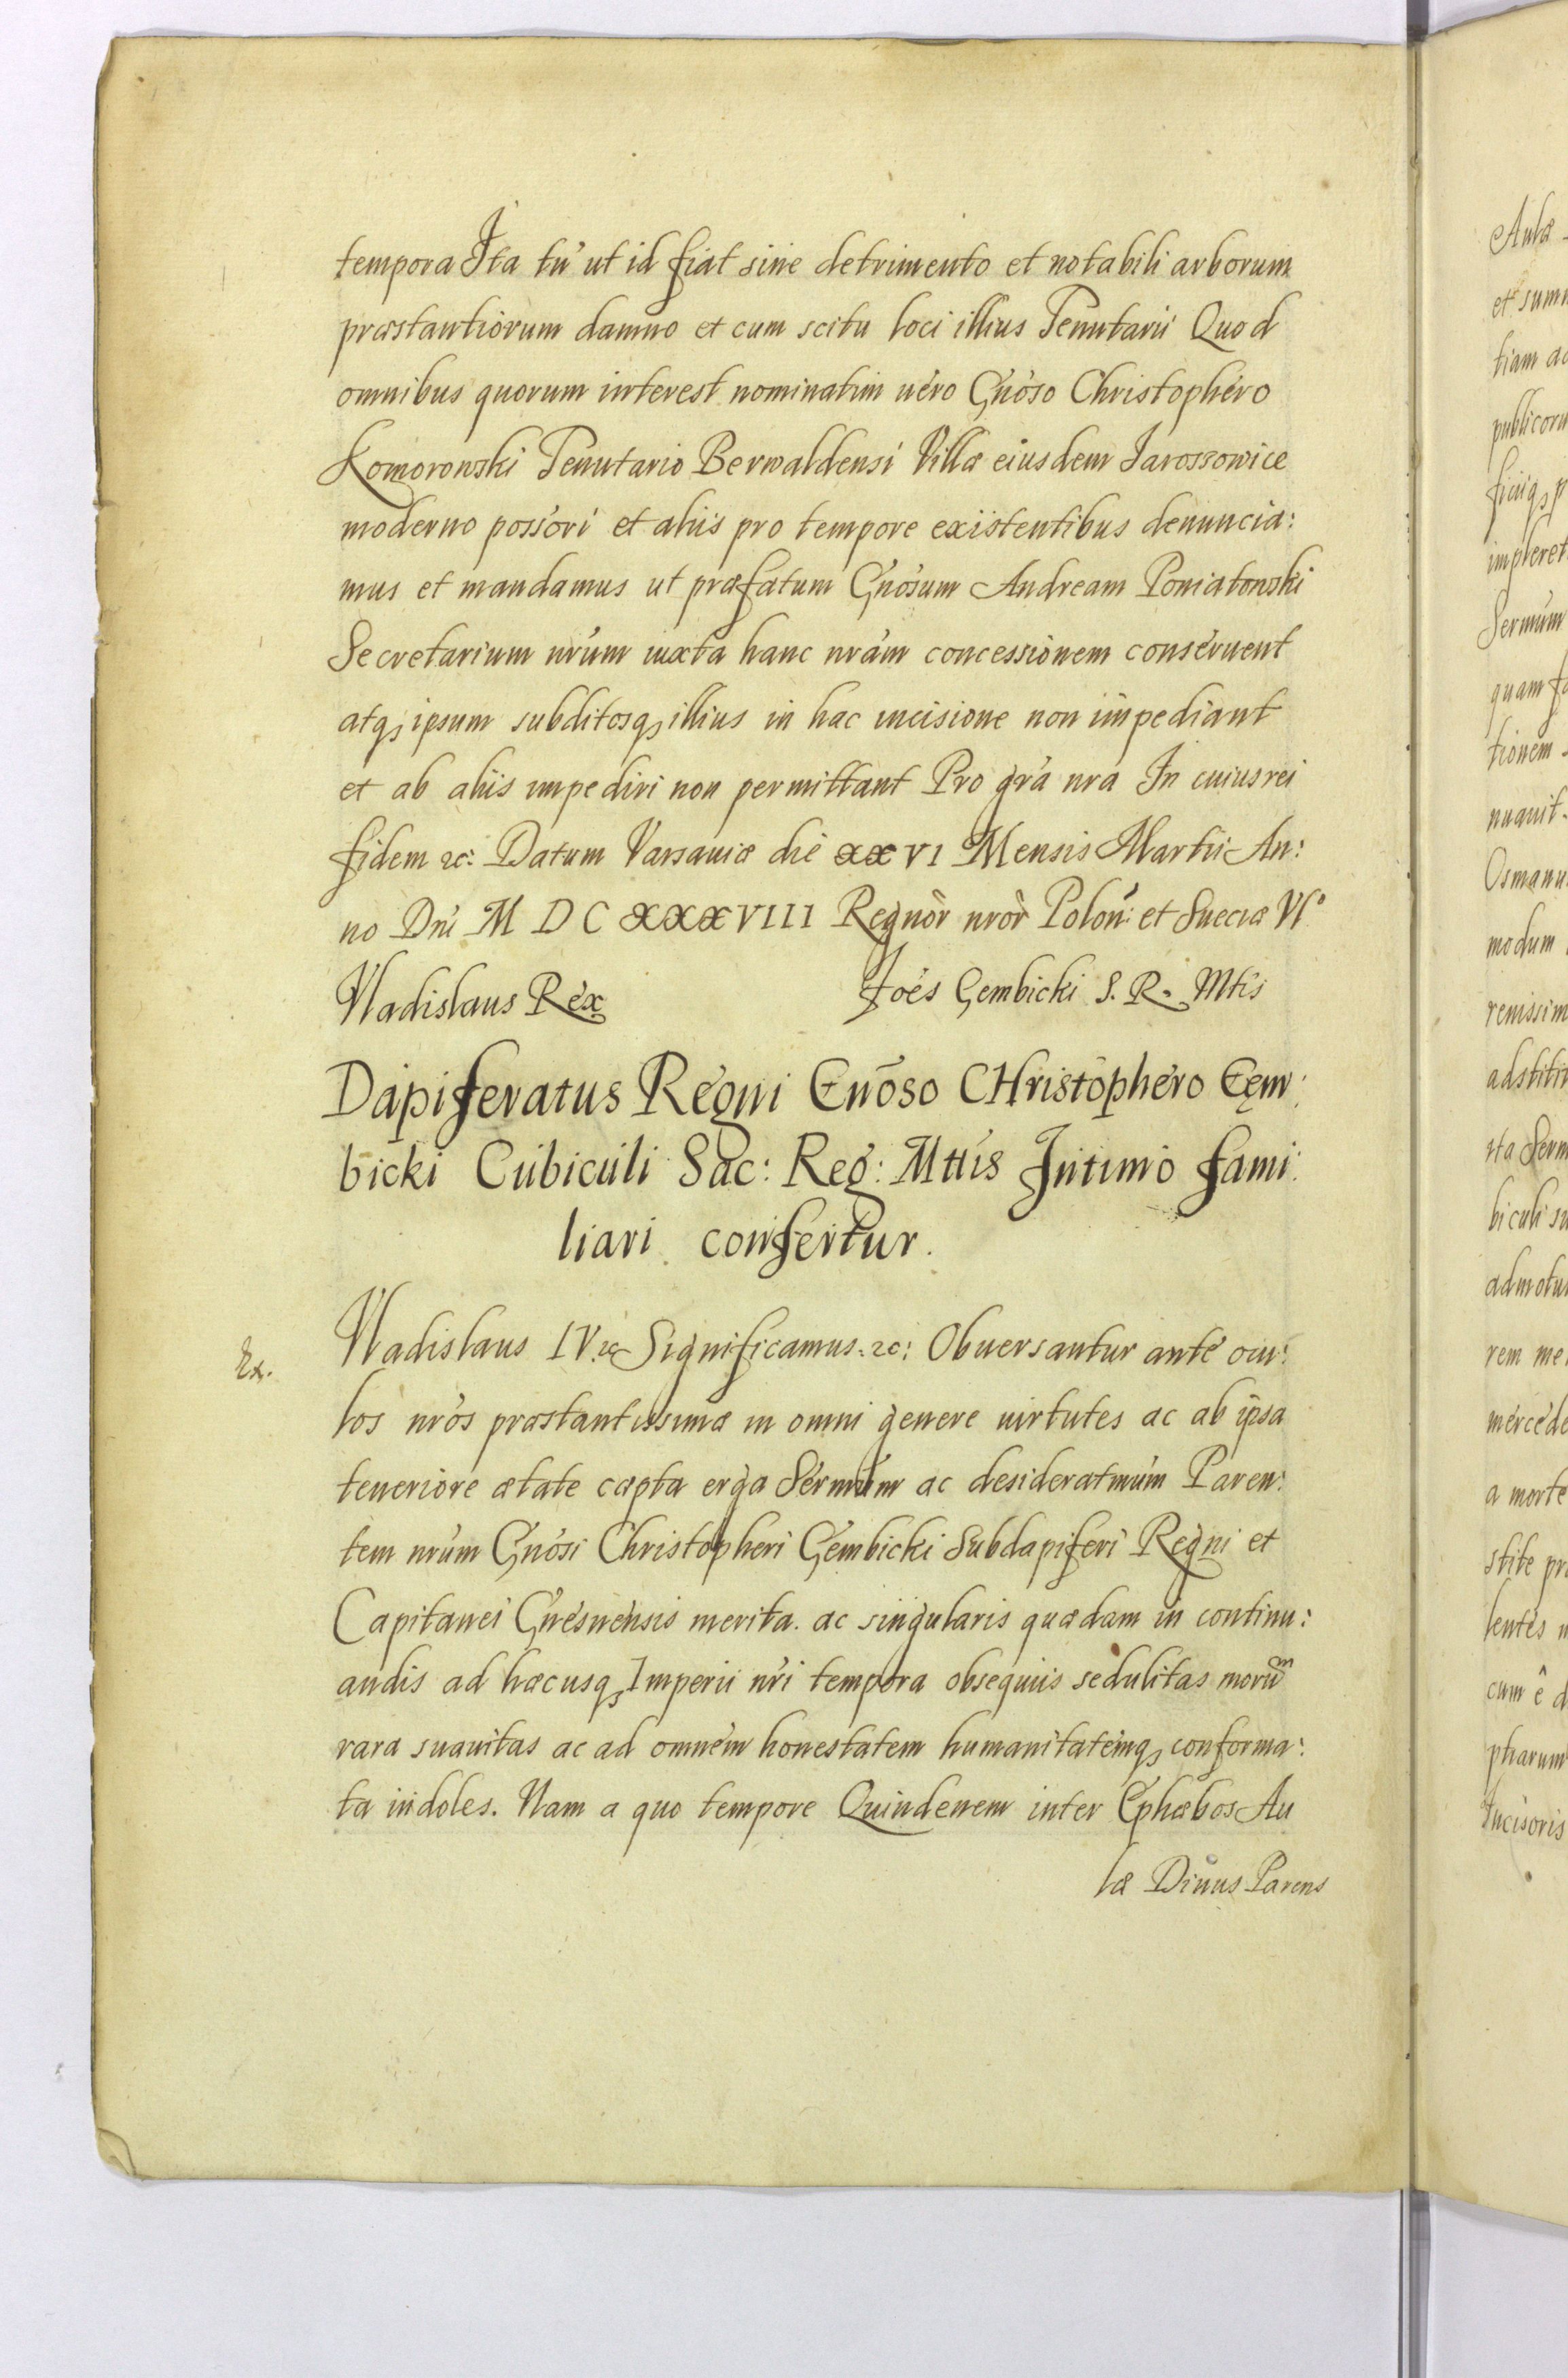 tempora Ita tñ ut id fiat sine detrimento et notabili arborum
præstantiorum damno et cum scitu loci illius Tenutarii Quod
omnibus quorum interest nominatim uero Gnoso Christophero
Komorowski Tenutario Berwaldensi Villæ eiusdem Jarossowice
moderno possori et aliis pro tempore existentibus denuncia:
mus et mandamus ut præfatum Gnosum Andream Poniatowski
Secretarium nrum iuxta hanc nram concessionem conseruent
atq, ipsum subditosq, illius in hac incisione non impediant
et ab aliis impediri non permittant Pro gra nra In cuius rei
fidem etc: Datum Varsauiæ die XXVI Mensis Martii An:
no Dni M D C XXXVIII Regnor nror Polon: et Sueciæ VI°
Vladislaus Rex
Joes Gembicki S. R. Mtis
Dapiferatus Regni Gnoso CHristophero Gęm:
bicki Cubiculi Sac: Reg: Mttis Intimo fami:
liari confertur.
Ex.
Vladislaus IV. etc Significamus. etc: Obuersantur ante ocu:
los nros præstantissimæ in omni genere uirtutes ac ab ipsa
teneriore ætate cæpta erga Sermum ac desideratmum Paren:
tem nrum Gnosi Christopheri Gembicki Subdapiferi Regni et
Capitanei Gnesnensis merita. ac singularis quædam in continu:
andis ad hæcusq, Imperii nri tempora obsequiis sedulitas morum
rara suauitas ac ad omnem honestatem humanitatemq, conforma:
ta indoles. Nam a quo tempore Quindenem inter Ephæbos Au
læ Diuus Parens
Aulæ
et
tiam
impleret
Sermum
quam
tionem
nuauit.
modum
a morte
stite
cum ê
Incisoris